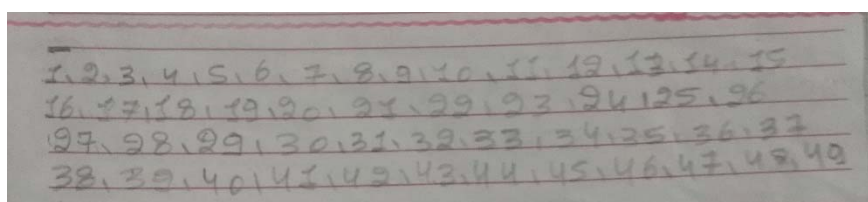 1, 2, 3, 4, 5, 6, 7, 8, 9, 10, 11, 12, 13, 14, 15
16, 17, 18, 19, 20, 21, 22, 23, 24, 25, 26
27, 28, 29, 30, 31, 32, 33, 34, 35, 36, 37
38, 39, 40, 41, 42, 43, 44, 45, 46, 47, 48, 49